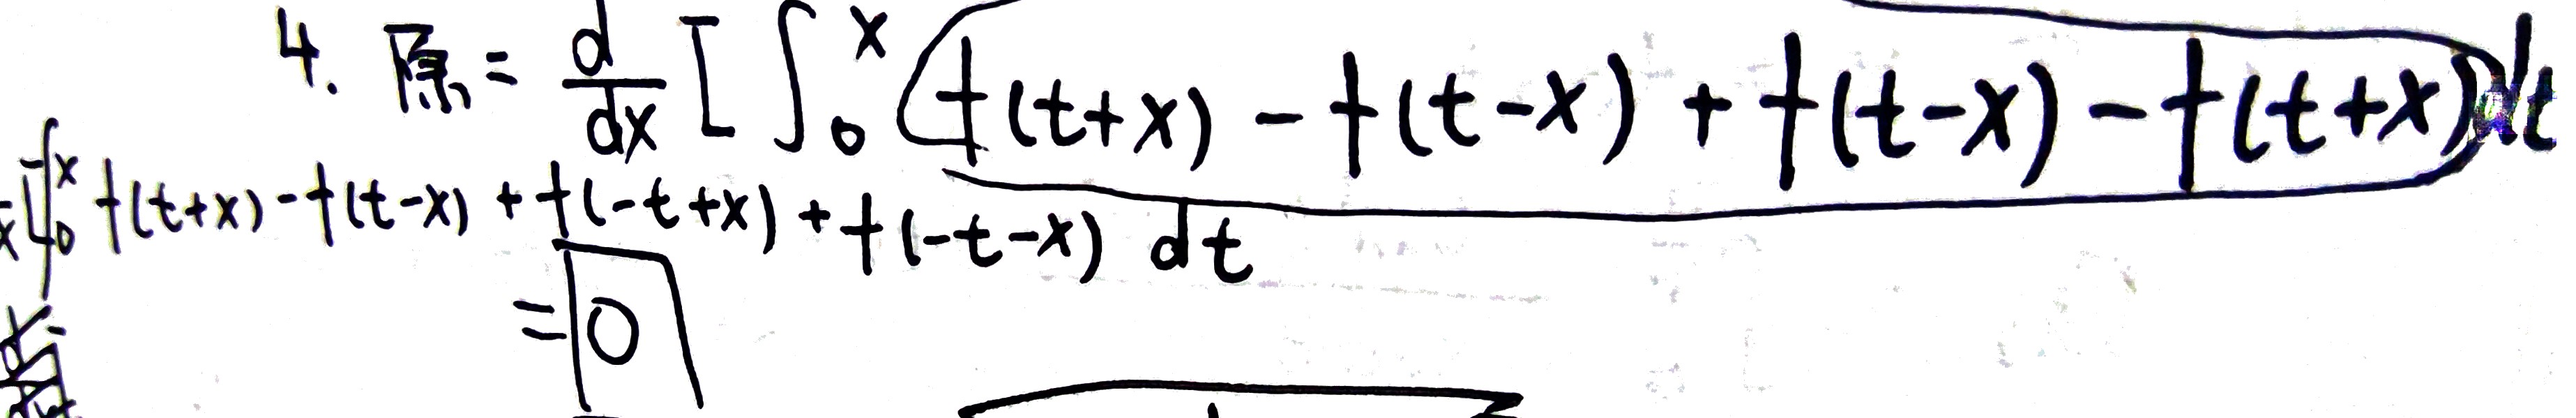 4. 原 = d/dx [ ∫₀ˣ (f(t+x) - f(t-x) + f(t-x) - f(t+x))dt
∫₀ˣ f(t+x) - f(t-x) + f(-t+x) + f(-t-x) dt
= 0